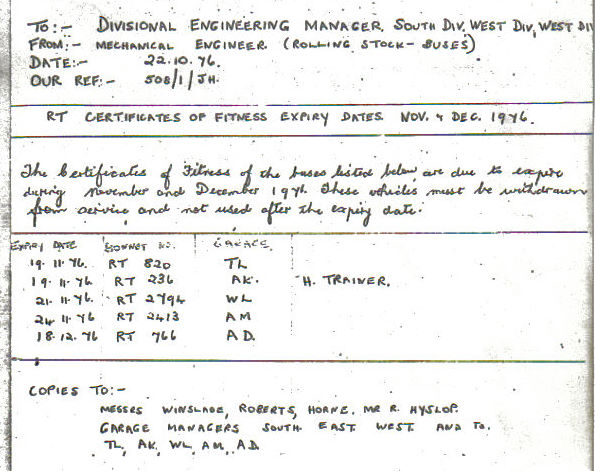 TO:- DIVISIONAL ENGINEERING MANAGER, SOUTH DIV, WEST DIV, WEST DIV
FROM:- MECHANICAL ENGINEER (ROLLING STOCK- BUSES)
DATE:- 22.10.76.
OUR REF:- 508/1/JH.
RT CERTIFICATES OF FITNESS EXPIRY DATES NOV. & DEC. 1976.
The Certificates of Fitness of the buses listed below are due to expire
during November and December 1976. These vehicles must be withdrawn
from service and not used after the expiry date.
EXPIRY DATE BONNET NO. GARAGE
19.11.76. RT 820 TL
19.11.76 RT 236 AK. H. TRAINER.
21.11.76 RT 2794 WL
24.11.76 RT 2413 AM
18.12.76 RT 766 AD.
COPIES TO:-
MESSRS WINSLADE, ROBERTS, HORNE. MR R. HYSLOP.
GARAGE MANAGERS SOUTH EAST WEST AND TO.
TL, AK, WL, AM, AD.